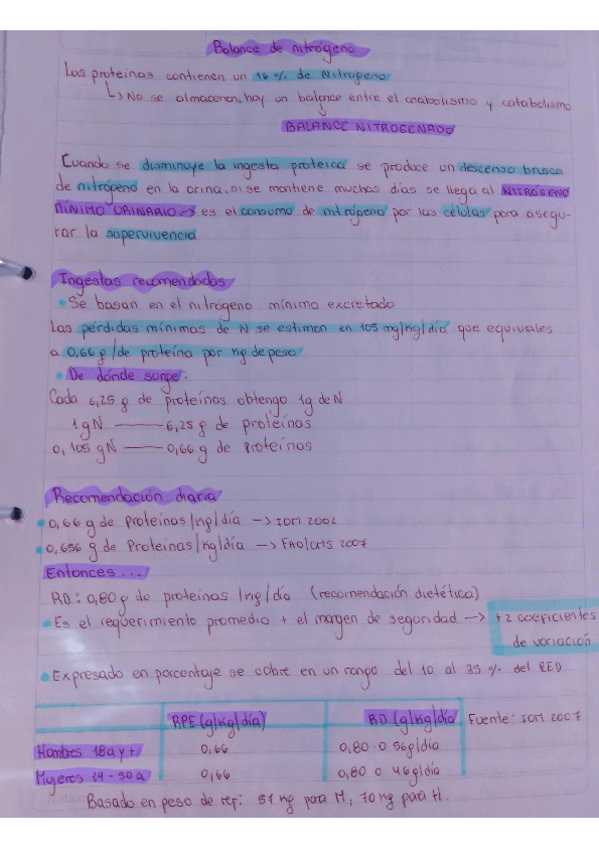 Balance de nitrógeno
Las proteínas contienen un 16% de Nitrogeno
↳ No se almacenan, hay un balance entre el anabolismo y catabolismo
BALANCE NITROGENADO
Cuando se disminuye la ingesta proteica se produce un descenso brusco
de nitrógeno en la orina, si se mantiene muchos días se llega al NITRÓGENO
MÍNIMO URINARIO → es el consumo de nitrógeno por las células para asegu-
rar la supervivencia
Ingestas recomendadas
• Se basan en el nitrógeno mínimo excretado
Las pérdidas mínimas de N se estiman en 105 mg/kg/día que equivales
a 0,66 g/de proteína por kg de peso
• De dónde surge:
Cada 6,25 g de proteínas obtengo 1g de N
1gN —— 6,25 g de proteínas
0,105 gN —— 0,66 g de Proteínas
Recomendación diaria
• 0,66 g de Proteínas/kg/día → IOM 2002
• 0,656 g de Proteínas/kg/día → FAO/OMS 2007
Entonces...
RD: 0,80g de proteínas /kg/día (recomendación dietética)
• Es el requerimiento promedio + el margen de seguridad → +2 coeficientes
de variación
• Expresado en porcentaje se cubre en un rango del 10 al 35 % del RED
RPE (g/kg/día) RD (g/kg/día Fuente: IOM 2007
Hombres 18a y + 0,66 0,80 o 56g/día
Mujeres 19-50a 0,66 0,80 o 46g/día
Basado en peso de ref: 57 kg para M, 70 kg para H.